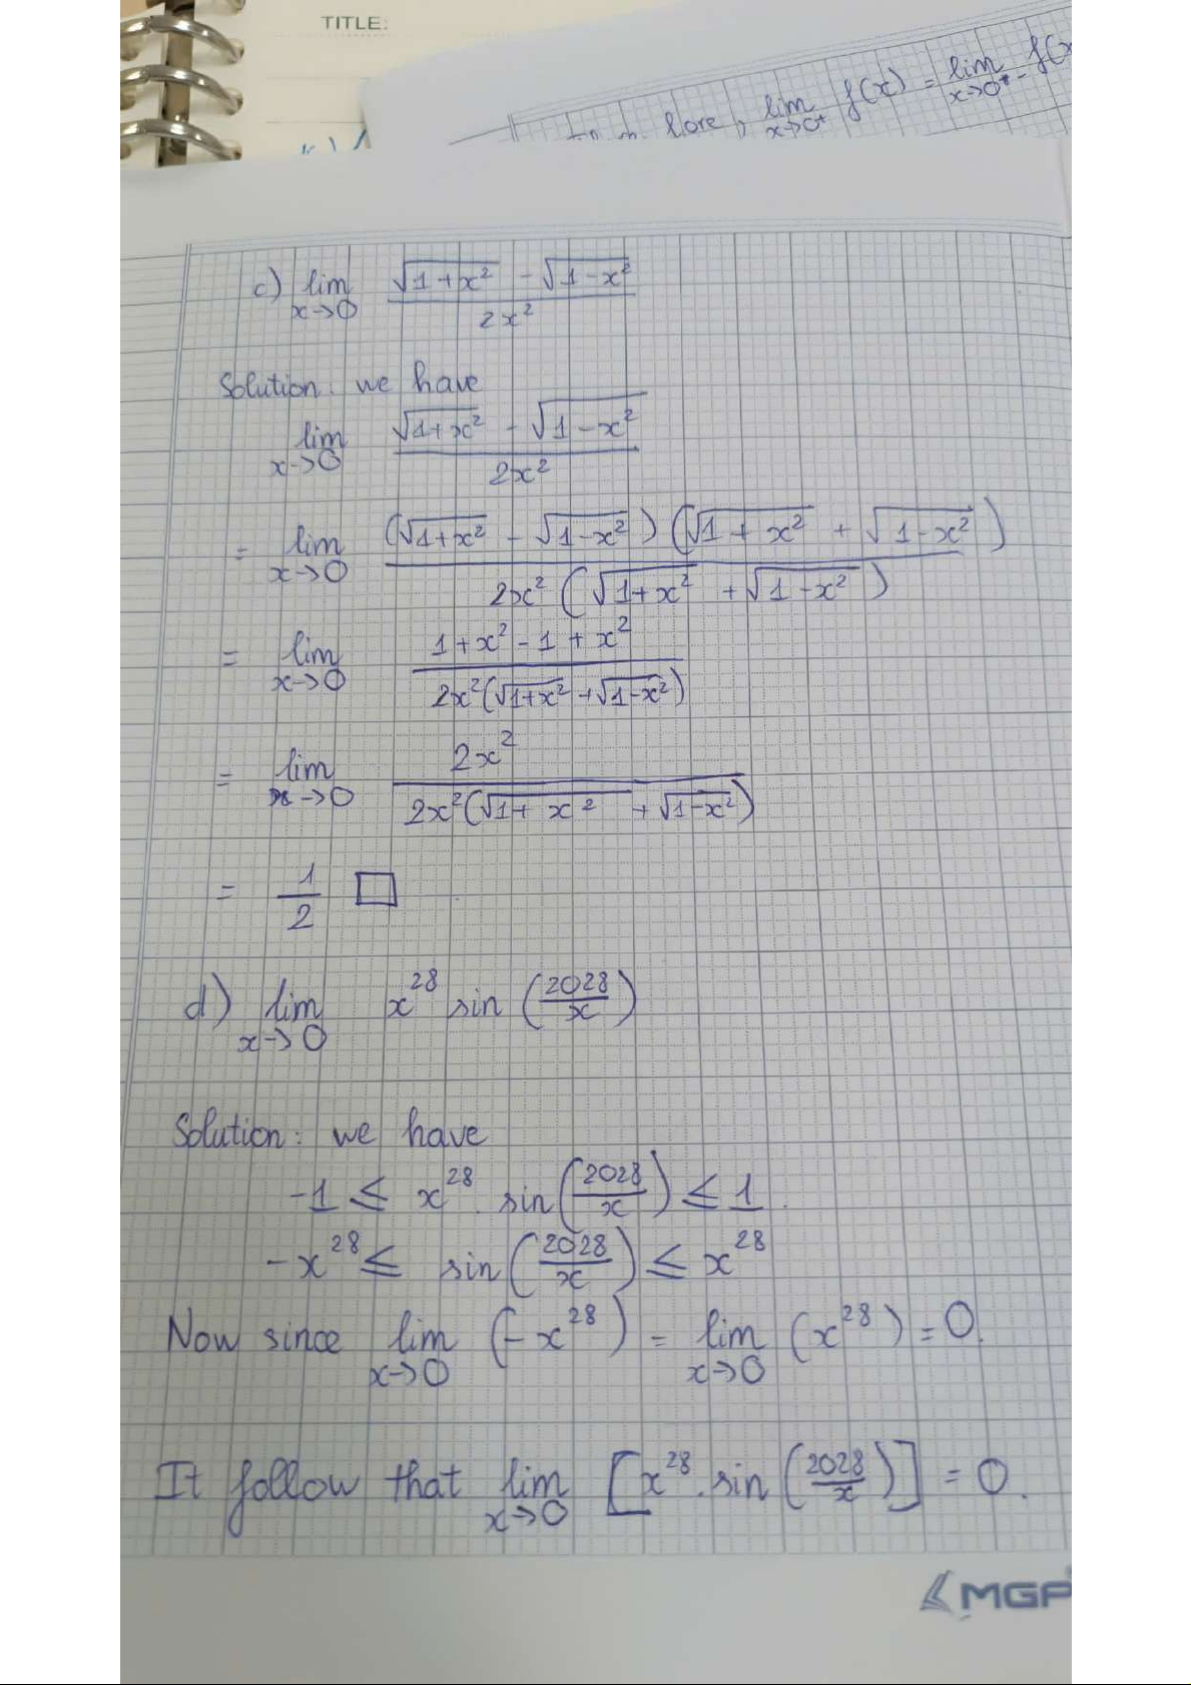 TITLE:
lim x→0⁺ f(x) = lim x→0⁻ f(x
c) lim x→0 (√(1+x²) - √(1-x²)) / 2x²
Solution: we have
lim x→0 (√(1+x²) - √(1-x²)) / 2x²
= lim x→0 (√(1+x²) - √(1-x²)) (√(1+x²) + √(1-x²)) / 2x² (√(1+x²) + √(1-x²))
= lim x→0 (1+x²-1+x²) / 2x²(√(1+x²) + √(1-x²))
= lim x→0 2x² / 2x²(√(1+x²) + √(1-x²))
= 1/2 □
d) lim x→0 x²⁸ sin (2028/x)
Solution: we have
-1 ≤ x²⁸. sin(2028/x) ≤ 1.
-x²⁸ ≤ sin(2028/x) ≤ x²⁸
Now since lim x→0 (-x²⁸) = lim x→0 (x²⁸) = 0.
It follow that lim x→0 [x²⁸. sin(2028/x)] = 0.
MGP